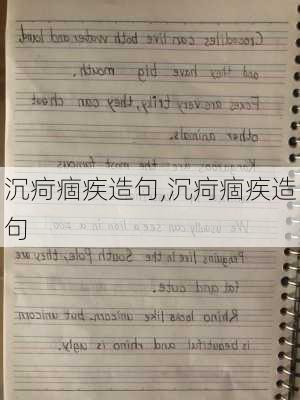 Crocodiles can live both water and land,
and they have big mouth.
Foxes are very triky, they can cheat
other animals.
沉疴痼疾造句,沉疴痼疾造
句
Penguins live in the South Pole, they are
fat and cute.
Rhino looks like unicorn, but unicorn
is beautiful and rhino is ugly.